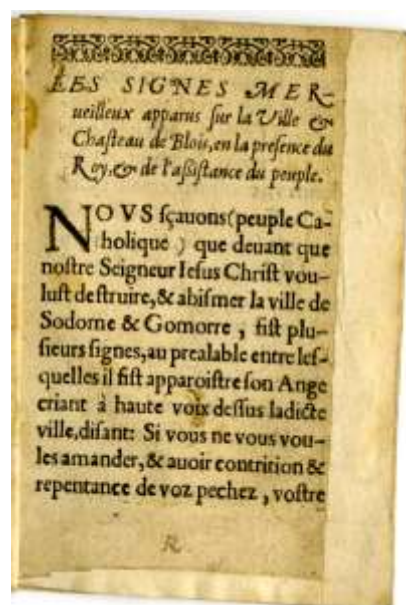 LES SIGNES MER-
ueilleux apparus ſur la Ville &
Chaſteau de Blois, en la preſence du
Roy, & de l'aſsiſtance du peuple.
NOVS ſçauons (peuple Ca-
tholique) que deuant que
noſtre Seigneur Ieſus Chriſt vou-
luſt deſtruire, & abiſmer la ville de
Sodome & Gomorre, fiſt plu-
ſieurs ſignes, au prealable entre leſ-
quelles il fiſt apparoiſtre ſon Ange
criant à haute voix deſſus ladicte
ville, diſant: Si vous ne vous vou-
les amander, & auoir contrition &
repentance de voz pechez, voſtre
R